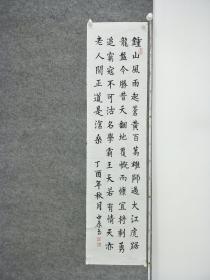 鐘山風雨起蒼黄百萬雄師過大江虎踞
龍盤今勝昔天翻地覆慨而慷宜將剩勇
追窮寇不可沽名學霸王天若有情天亦
老人間正道是滄桑 丁酉年秋月